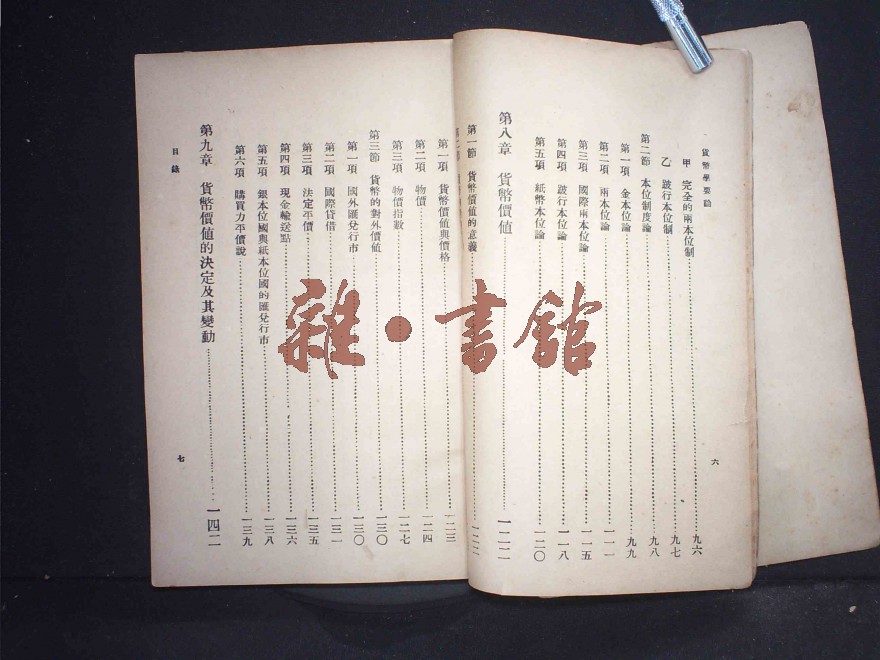 貨幣學要論
甲 完全的兩本位制 九六
乙 跛行本位制 九七
第二節 本位制度論 九八
第一項 金本位論 九九
第二項 兩本位論 一一一
第三項 國際兩本位論 一一五
第四項 跛行本位論 一一八
第五項 紙幣本位論 一二〇
第八章 貨幣價值 一二二
第一節 貨幣價值的意義 一二二
六
第一項 貨幣價值與價格 一二三
第二項 物價 一二四
第三項 物價指數 一二七
第三節 貨幣的對外價值 一三〇
第一項 國外匯兌行市 一三〇
第二項 國際貸借 一三一
第三項 法定平價 一三五
第四項 現金輸送點 一三六
第五項 銀本位國與紙本位國的匯兌行市 一三八
第六項 購買力平價說 一三九
第九章 貨幣價值的決定及其變動 一四二
目錄
七
雜·書館